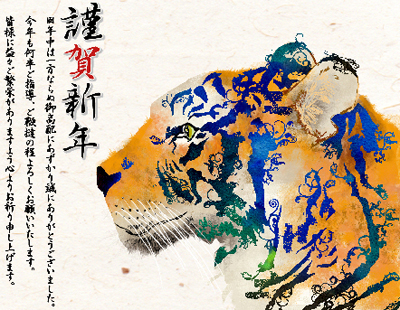 謹賀新年
旧年中は一方ならぬ御高配にあずかり誠にありがとうございました。
今年も何卒ご指導、ご鞭撻の程よろしくお願いいたします。
皆様に益々ご繁栄がありますよう心よりお祈り申し上げます。